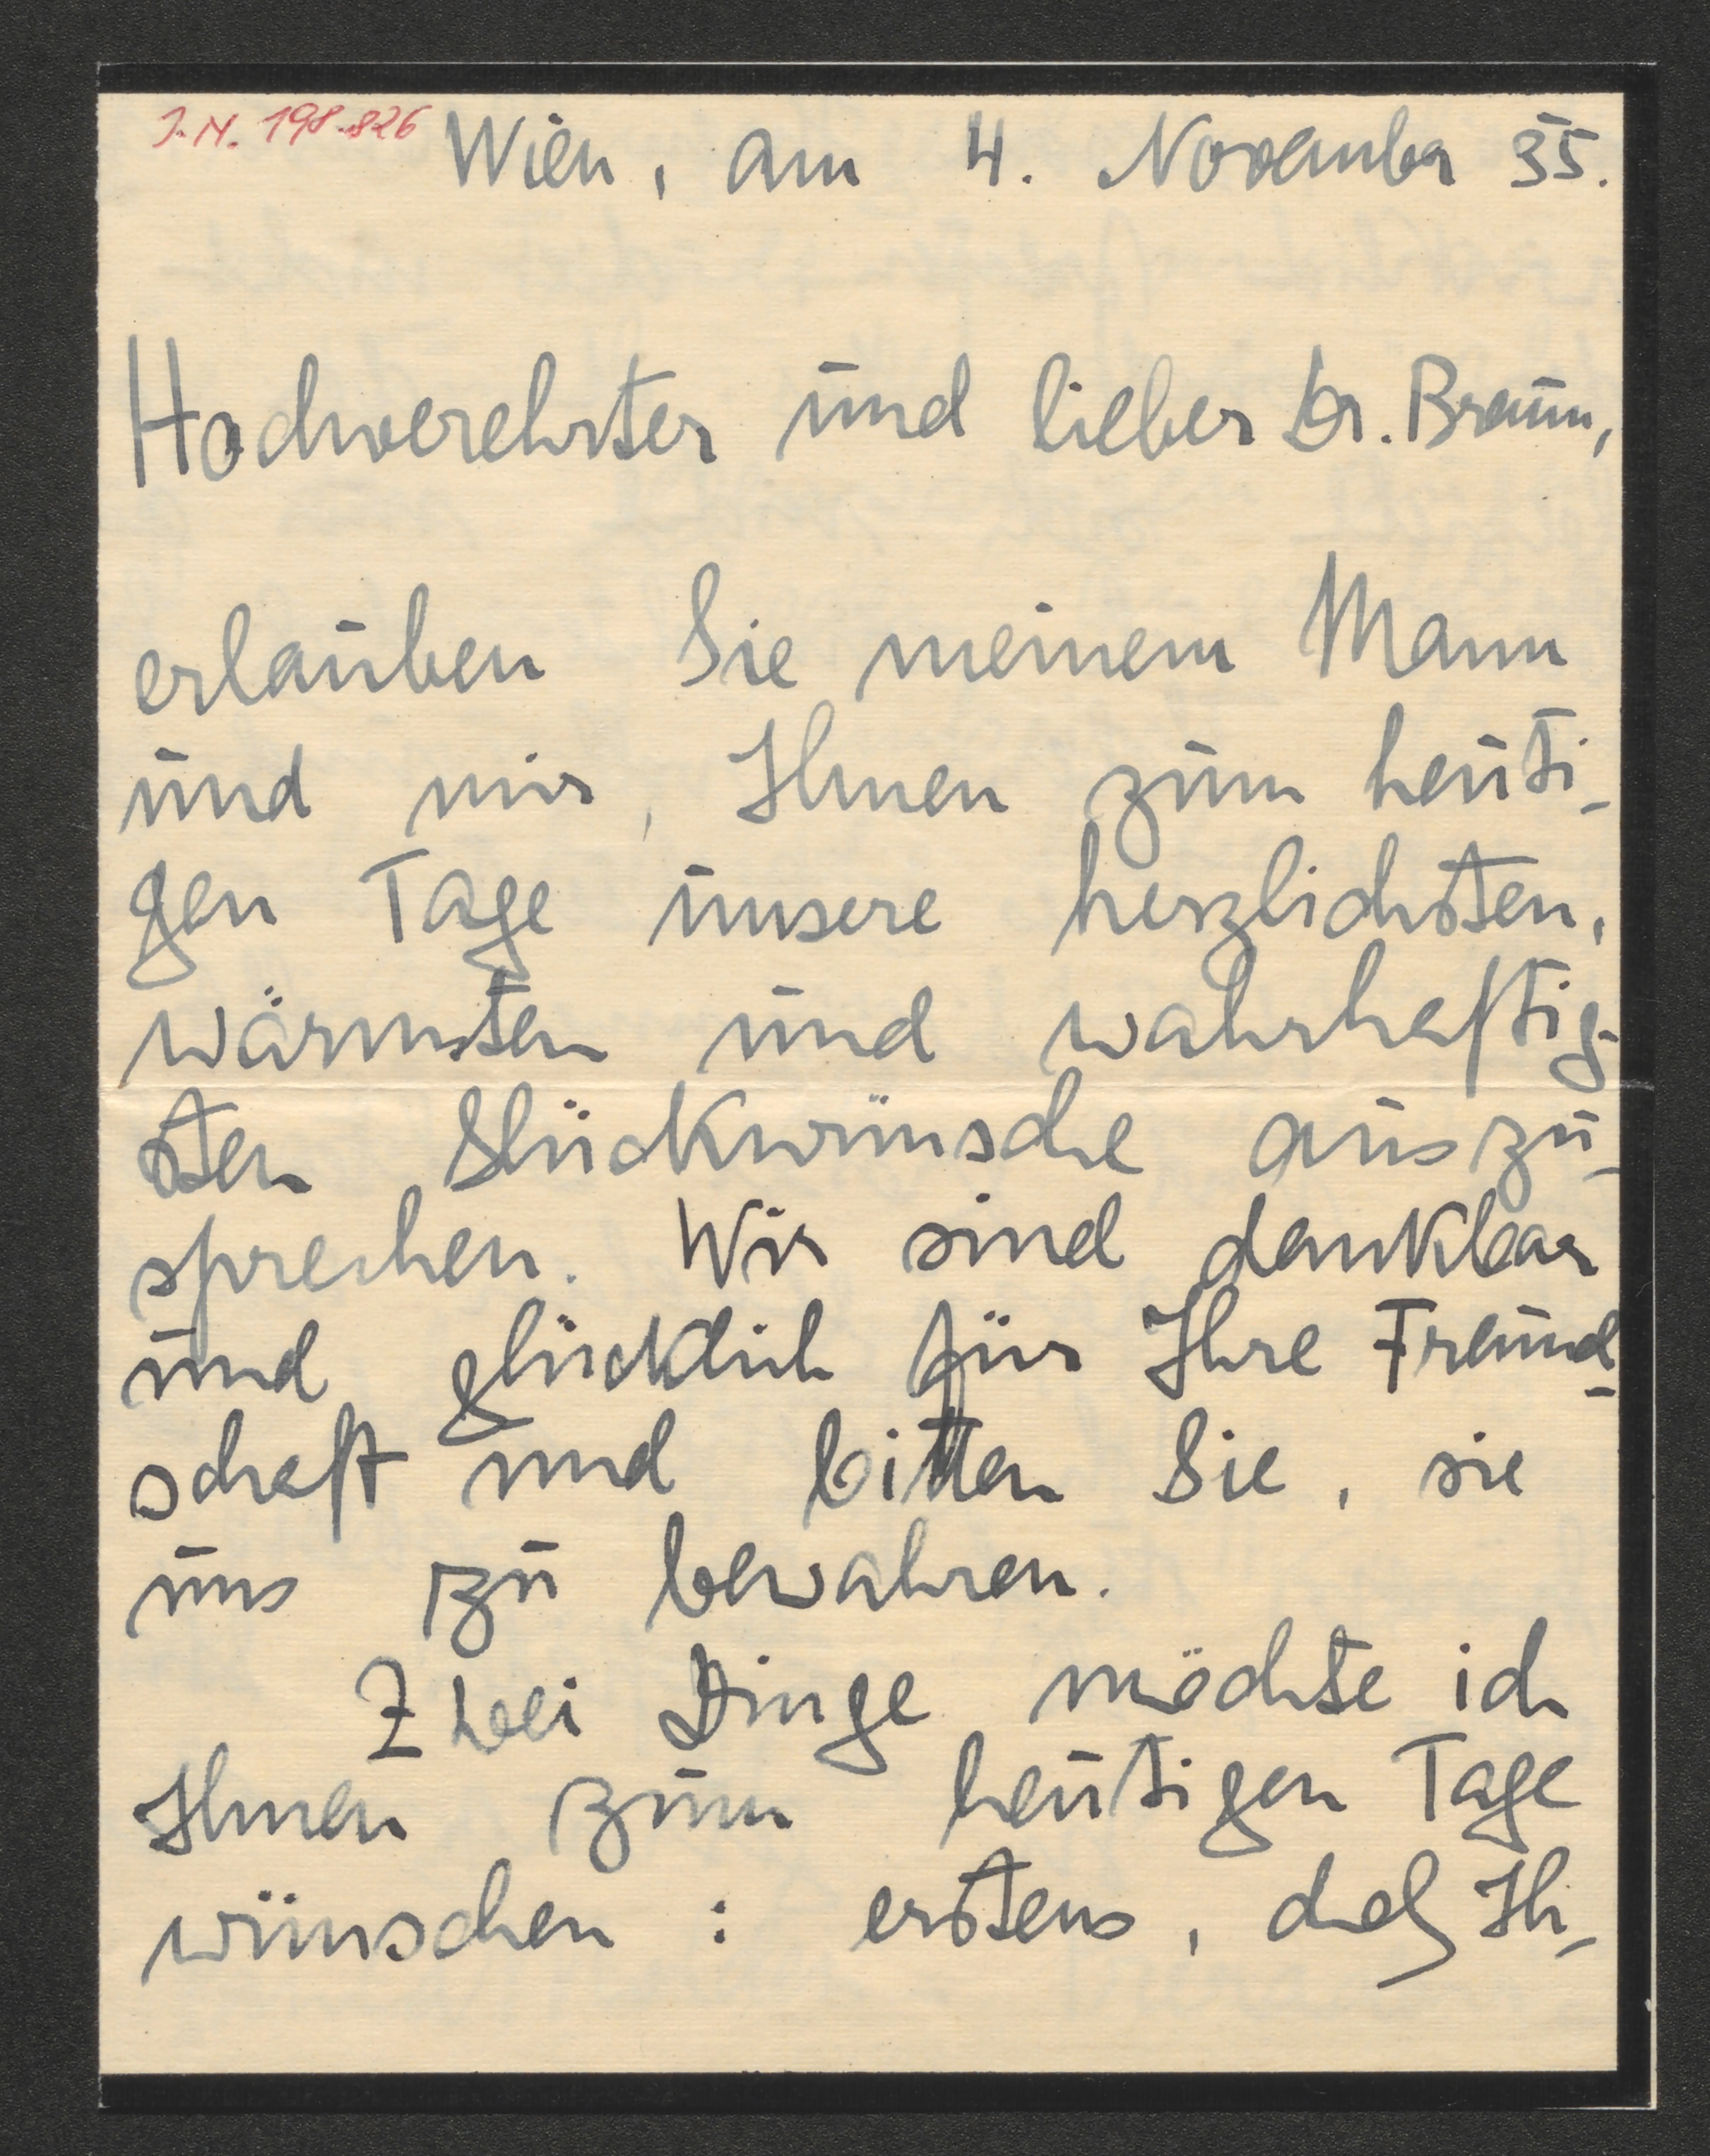 J.N. 198.826
Wien, am 4. November 35.
Hochverehrter und lieber Dr. Braun,
erlauben Sie meinem Mann
und mir, Ihnen zum heuti-
gen Tage unsere herzlichsten,
wärmsten und wahrhaftig-
sten Glückwünsche auszu-
sprechen. Wir sind dankbar
und glücklich für Ihre Freund-
schaft und bitten Sie, sie
uns zu bewahren.
Zwei Dinge möchte ich
Ihnen zum heutigen Tage
wünschen: erstens, daß Ih-